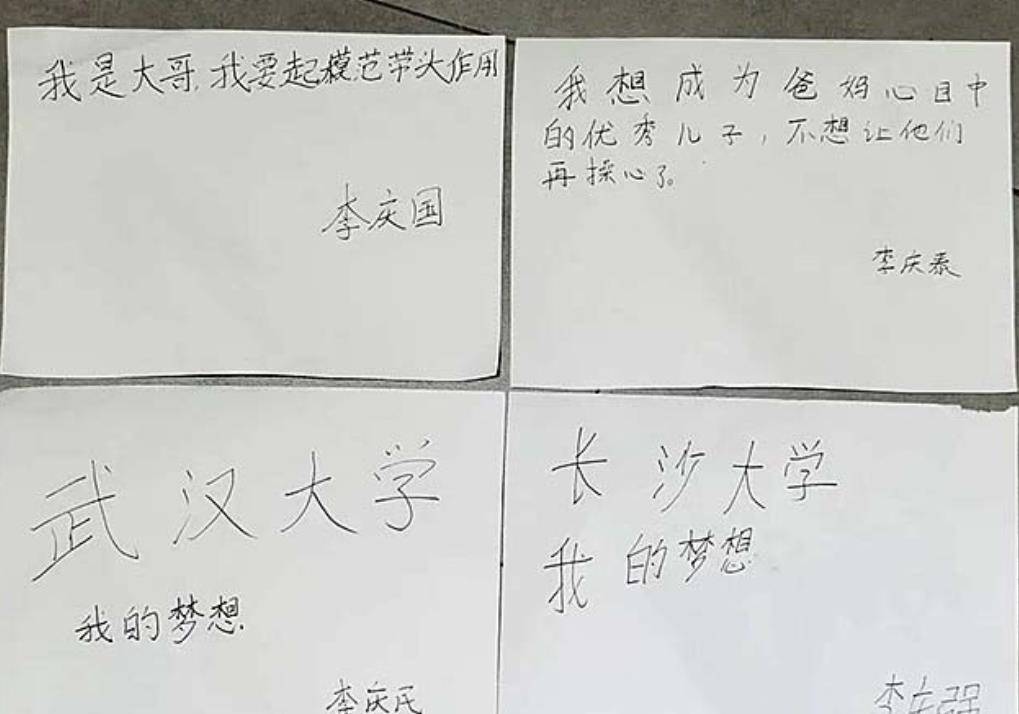 我是大哥,我要起模范带头作用
李庆国
我想成为爸妈心目中
的优秀儿子,不想让他们
再操心了。
李庆泰
武汉大学
我的梦想.
李庆民
长沙大学
我的梦想
李庆强